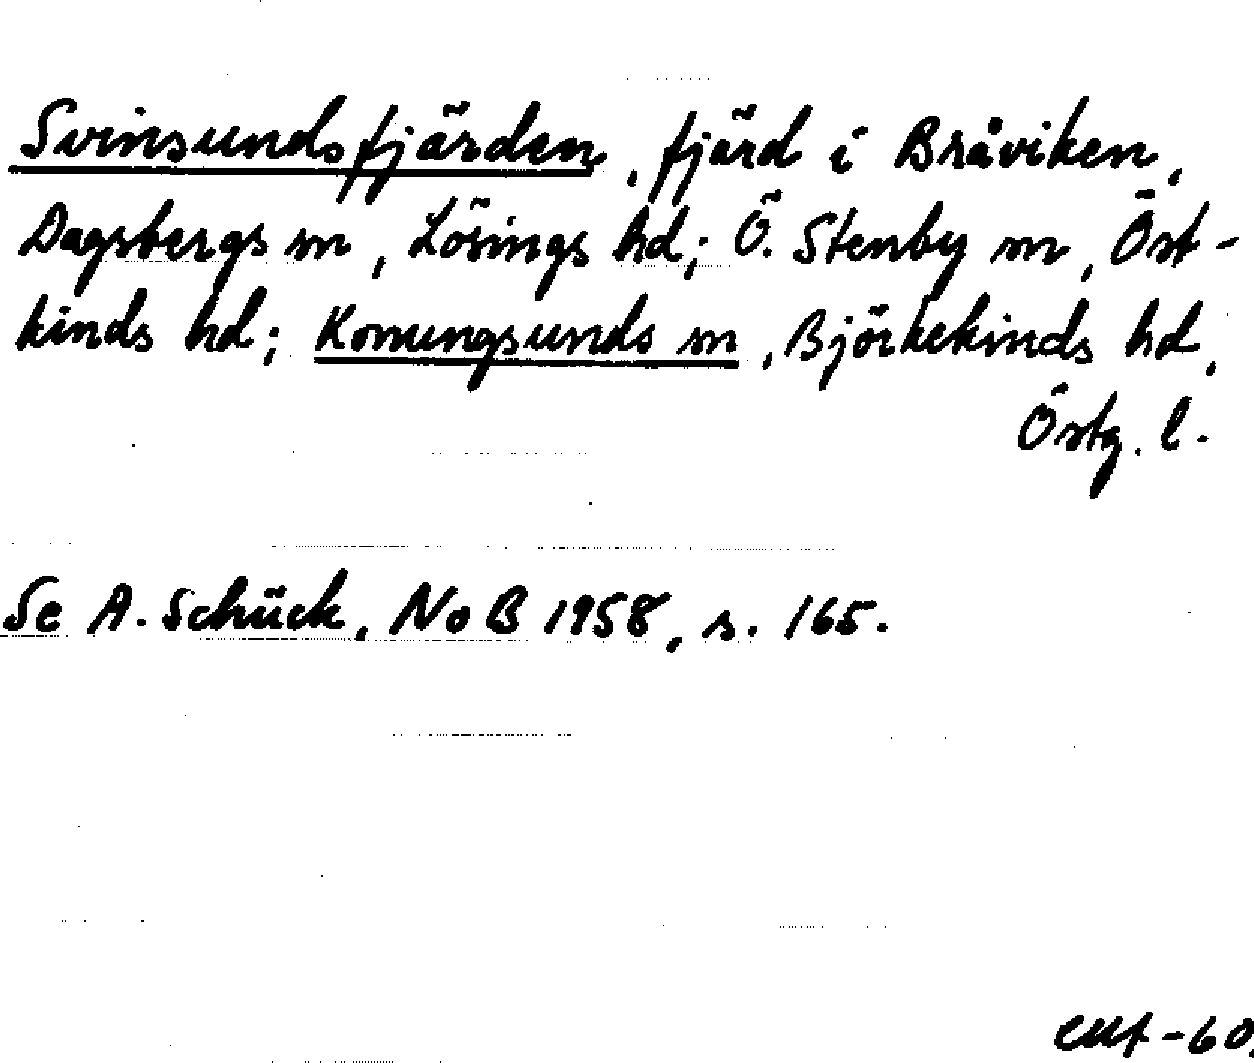 Svinsundsfjärden, fjärd i Bråviken,
Dagsbergs sn, Lösings hd; Ö. Stenby sn, Öst-
kinds hd; Konungsunds sn, Björkekinds hd,
Östg. l.
Se A. Schück, NoB 1958, s. 165.
-60.